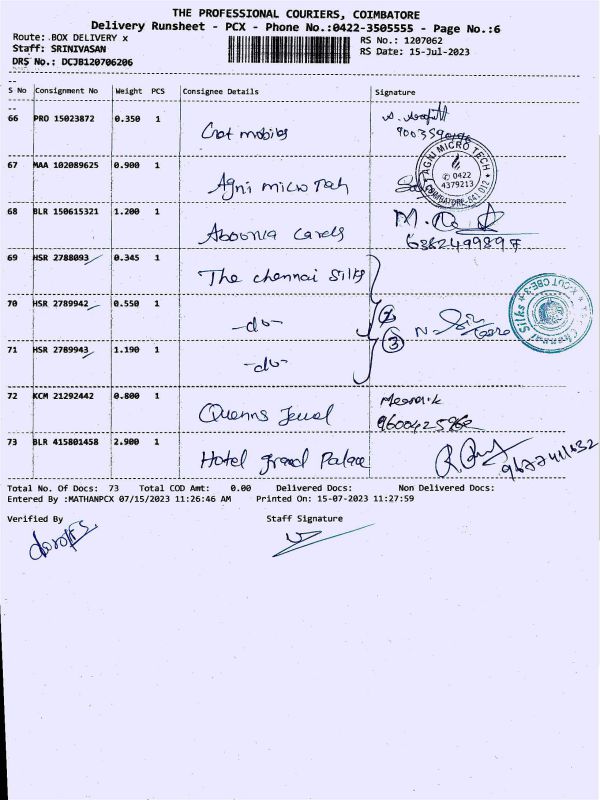 THE PROFESSIONAL COURIERS, COIMBATORE
Delivery Runsheet - PCX - Phone No.:0422-3505555 - Page No.:6
Route: BOX DELIVERY x RS No.: 1207062
Staff: SRINIVASAN RS Date: 15-Jul-2023
DRS No.: DCJB120706206
S No Consignment No Weight PCS Consignee Details Signature
66 PRO 15023872 0.350 1 Chat mobiles
67 MAA 102089625 0.900 1 Agni micro Tech
AGNI MICRO TECH
0422
4379213
COIMBATORE-641 012
68 BLR 150615321 1.200 1 Aboonia Cards
6382499897
69 HSR 2788093 0.345 1 The chennai Silks
70 HSR 2789942 0.550 1 -do- (2)
71 HSR 2789943 1.190 1 -do- (3)
72 KCM 21292442 0.800 1 Queens Jewel
9600425962
73 BLR 415801458 2.900 1 Hotel grand Palace
Total No. Of Docs: 73 Total COD Amt: 0.00 Delivered Docs: Non Delivered Docs:
Entered By :MATHANPCX 07/15/2023 11:26:46 AM Printed On: 15-07-2023 11:27:59
Verified By Staff Signature